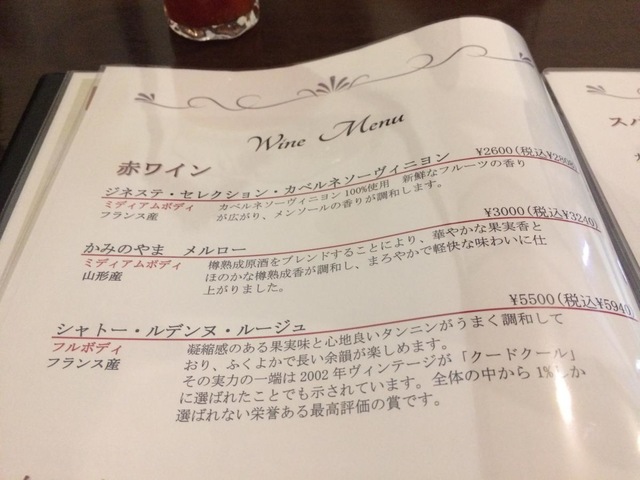 Wine Menu
赤ワイン
¥2600(税込¥2808)
ジネステ・セレクション・カベルネソーヴィニヨン
ミディアムボディ カベルネソーヴィニヨン100%使用 新鮮なフルーツの香り
フランス産 が広がり、メンソールの香りが調和します。
¥3000(税込¥3240)
かみのやま メルロー
ミディアムボディ 樽熟成原酒をブレンドすることにより、華やかな果実香と
山形産 ほのかな樽熟成香が調和し、まろやかで軽快な味わいに仕
上がりました。
¥5500(税込¥5940)
シャトー・ルデンヌ・ルージュ
フルボディ 凝縮感のある果実味と心地良いタンニンがうまく調和して
フランス産 おり、ふくよかで長い余韻が楽しめます。
その実力の一端は2002年ヴィンテージが「クードクール」
に選ばれたことでも示されています。全体の中から1%しか
選ばれない栄誉ある最高評価の賞です。
スパ